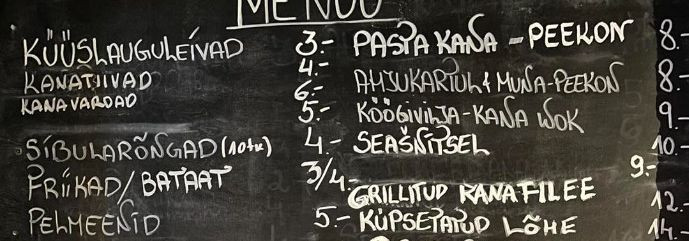 MENÜÜ
KÜÜSLAUGULEIVAD 3.-
KANATIIVAD 4.-
KANAVARDAD 6.-
5.-
SIBULARÕNGAD (10tk) 4.-
FRIIKAD/BATAAT 3/4.-
PELMEENID 5.-
PASTA KANA-PEEKON 8.-
AHJUKARTUL & MUNA-PEEKON 8.-
KÖÖGIVILJA-KANA WOK 9.-
SEAŠNITSEL 10.-
9.-
GRILLITUD KANAFILEE 12.-
KÜPSETATUD LÕHE 14.-